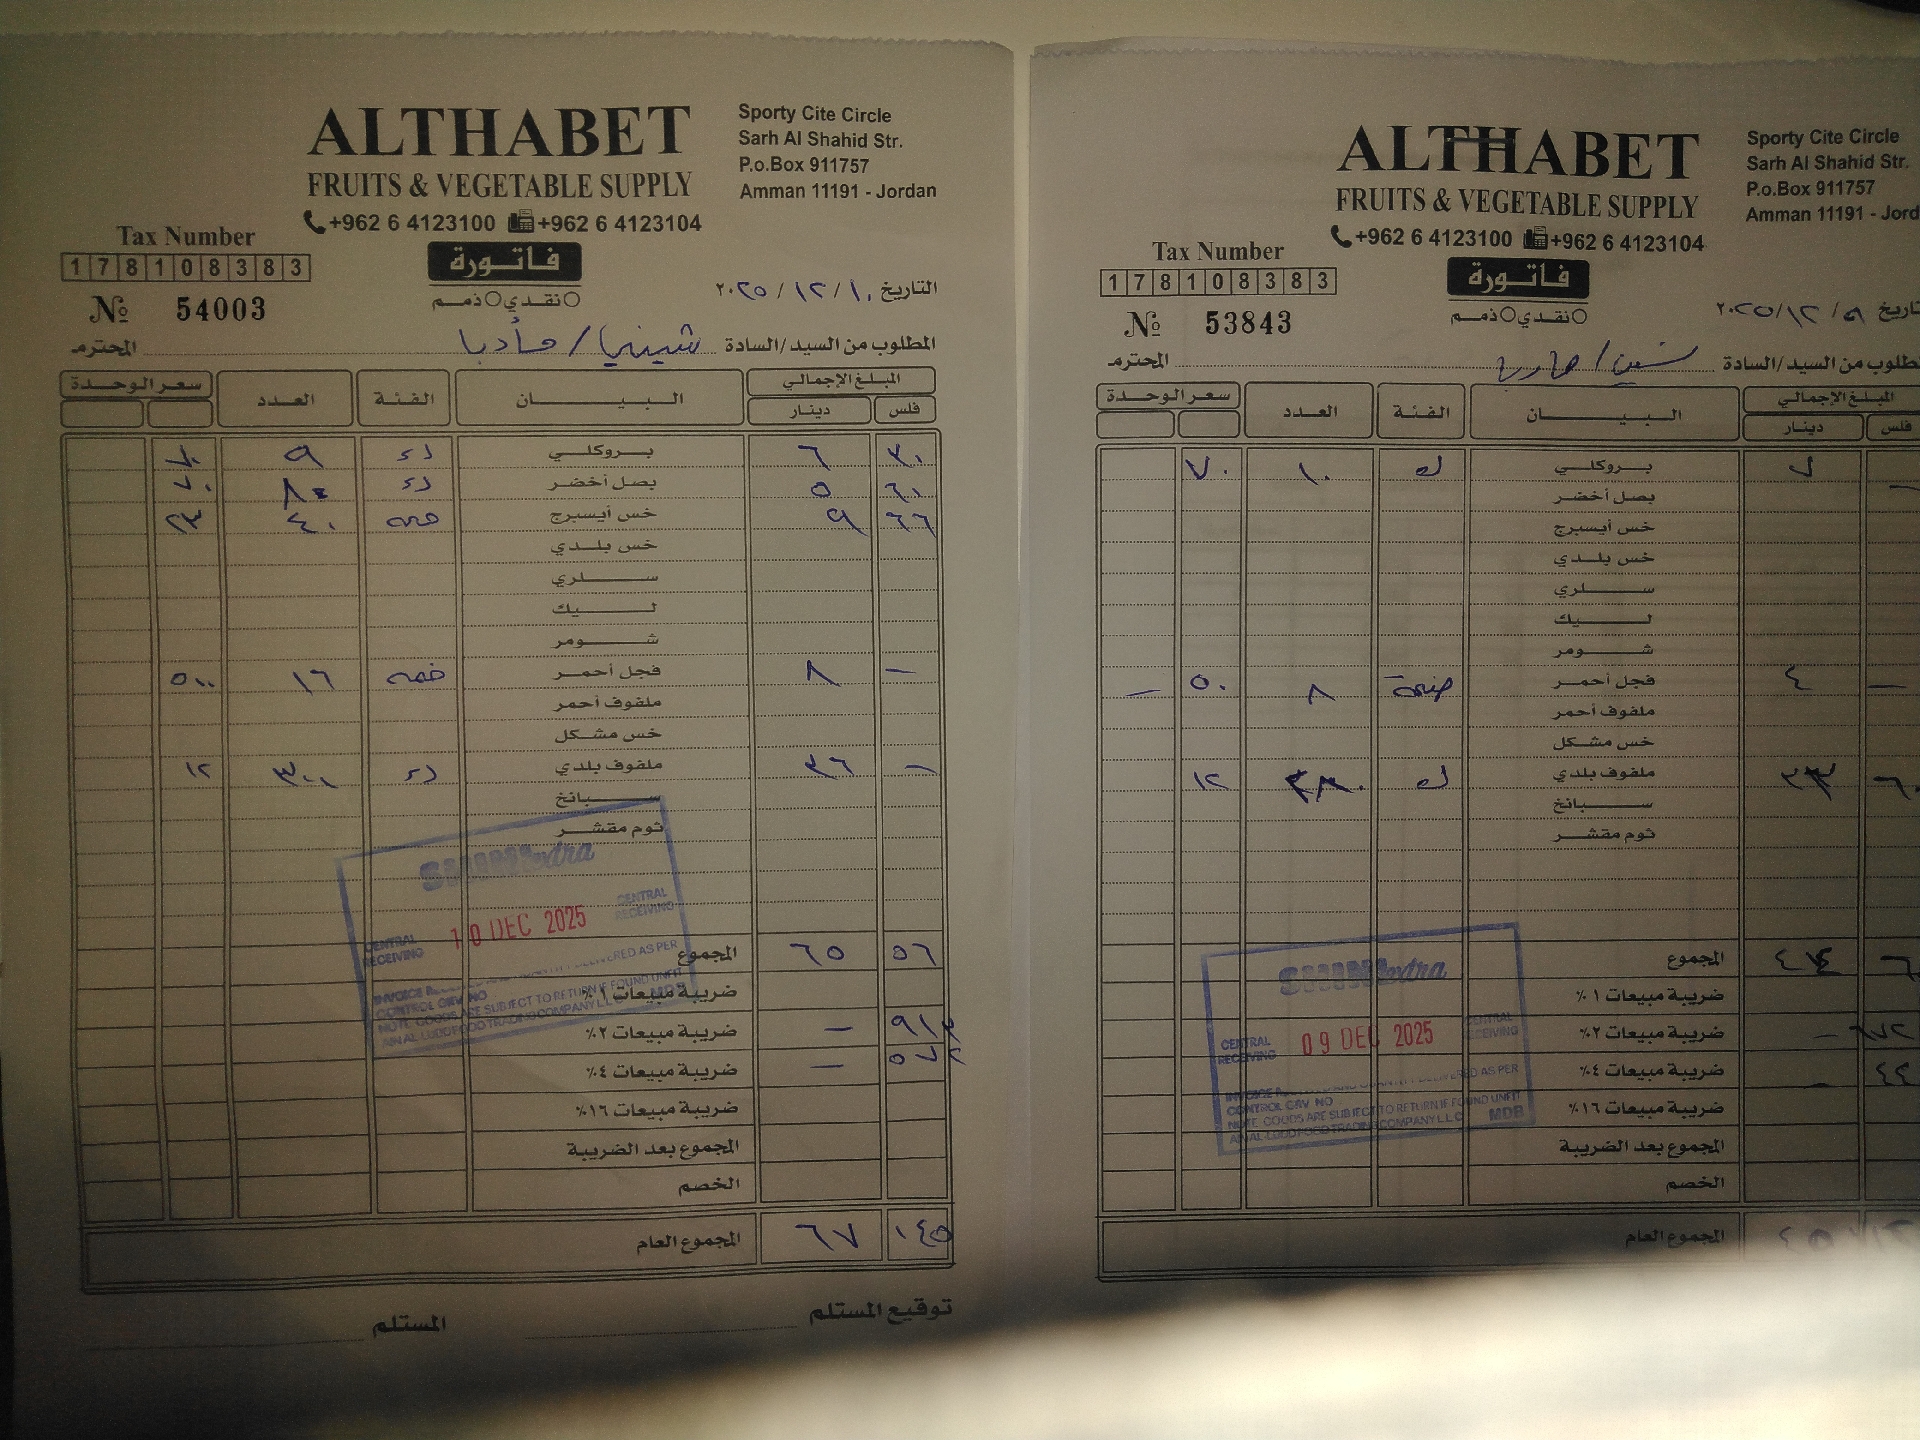 ALTHABET
FRUITS & VEGETABLE SUPPLY
+962 6 4123100 +962 6 4123104
Sporty Cite Circle
Sarh Al Shahid Str.
P.o.Box 911757
Amman 11191 - Jordan
Tax Number
178108383
№ 54003
فاتورة
نقدي ذمم
التاريخ ١٠ / ١٢ / ٢٠٢٥
المطلوب من السيد/السادة شيني / مأدبا المحترم
المبلغ الإجمالي البيـان الفئة العدد سعر الوحدة
فلس دينار
٣٠ ٦ بروكلي ٩ ٧٠
٦٠ ٥ بصل أخضر ٨ ٧٠
٦٦ ٩ خس أيسبرج ٤٠ ٢٣
خس بلدي
سلري
ليك
شومر
- ٨ فجل أحمر ضمه ١٦ ٥٠٠
ملفوف أحمر
خس مشكل
- ٣٦ ملفوف بلدي ٣٠٠ ١٢
سبانخ
ثوم مقشر
٥٦ ٦٥ المجموع
ضريبة مبيعات ١٪
٩١٣ - ضريبة مبيعات ٢٪
٥٧٨ - ضريبة مبيعات ٤٪
ضريبة مبيعات ١٦٪
المجموع بعد الضريبة
الخصم
١٤٥ ٦٧ المجموع العام
توقيع المستلم المستلم
extra
CENTRAL RECEIVING
10 DEC 2025
CENTRAL RECEIVING
DELIVERED AS PER
CONTROL GRV NO
NOTE GOODS ARE SUBJECT TO RETURN IF FOUND UNFIT
TRADING COMPANY L.L.C MDB
ALTHABET
FRUITS & VEGETABLE SUPPLY
+962 6 4123100 +962 6 4123104
Sporty Cite Circle
Sarh Al Shahid Str.
P.o.Box 911757
Amman 11191 - Jord
Tax Number
178108383
№ 53843
فاتورة
نقدي ذمم
تاريخ ٩ / ١٢ / ٢٠٢٥
طلوب من السيد/السادة المحترم
المبلغ الإجمالي البيـان الفئة العدد سعر الوحدة
فلس دينار
- ٧ بروكلي ك ١٠ ٧٠
بصل أخضر
خس أيسبرج
خس بلدي
سلري
ليك
شومر
- ٤ فجل أحمر ضمة ٨ ٥٠ -
ملفوف أحمر
خس مشكل
٦٠ ٣٣ ملفوف بلدي ك ٢٨٠ ١٢
سبانخ
ثوم مقشر
٦٠ ٤٤ المجموع
ضريبة مبيعات ١٪
٦٧٢ - ضريبة مبيعات ٢٪
٤٤ - ضريبة مبيعات ٤٪
ضريبة مبيعات ١٦٪
المجموع بعد الضريبة
الخصم
المجموع العام
extra
CENTRAL RECEIVING
09 DEC 2025
CENTRAL RECEIVING
DELIVERED AS PER
CONTROL GRV NO
NOTE GOODS ARE SUBJECT TO RETURN IF FOUND UNFIT
TRADING COMPANY L.L.C MDB